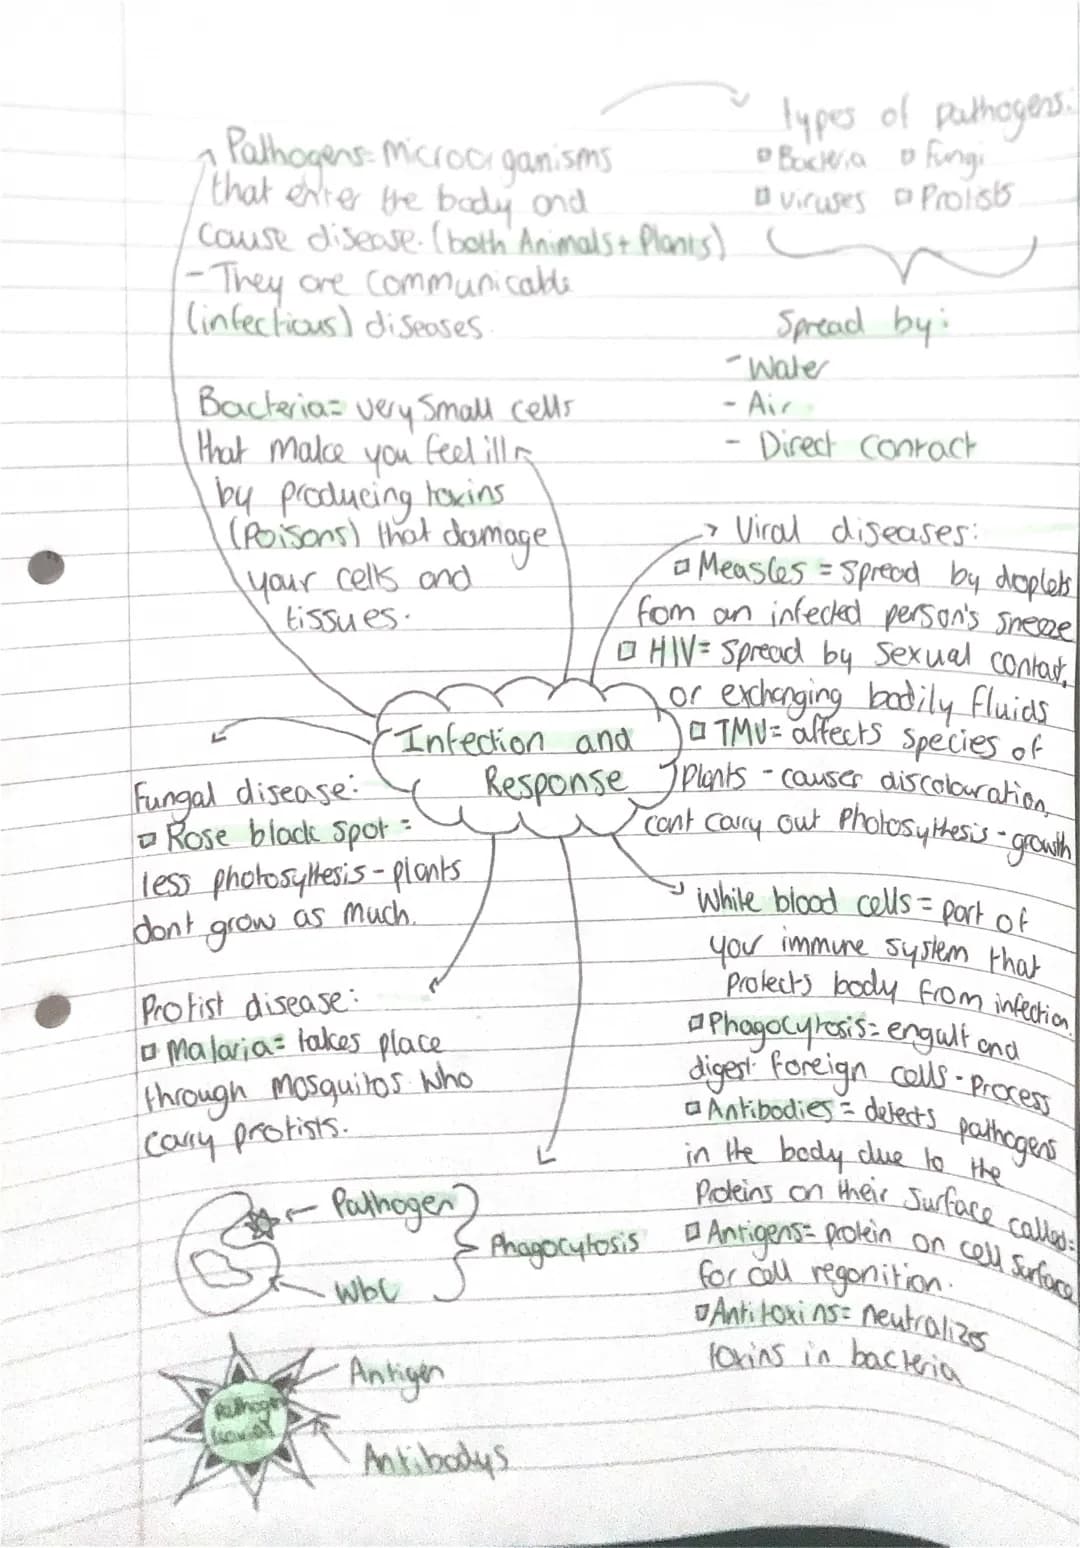 Pathogens= Microorganisms
that enter the body and
cause disease. (both Animals + Plants)
- They are communicable
(infectious) diseases.
types of pathogens:
Bacteria Fungi
viruses Protists
Spread by:
- Water
- Air
- Direct contact
Bacteria= very small cells
that make you feel ill
by producing toxins
(Poisons) that damage
your cells and
tissues.
Viral diseases:
Measles = Spread by droplets
from an infected person's sneeze
HIV= Spread by sexual contact,
or exchanging bodily fluids
TMV= affects species of
Plants - causes discolouration,
cant carry out Photosythesis - growth
Infection and
Response
Fungal disease:
Rose black spot =
less photosythesis - plants
dont grow as much.
Protist disease:
Malaria= takes place
through mosquitos who
carry protists.
White blood cells = part of
your immune system that
Protects body from infection.
Phagocytosis= engulf and
digest foreign cells - Process
Antibodies = detects pathogens
in the body due to the
Proteins on their surface called:
Antigens= protein on cell surface
for cell regonition.
Antitoxins= neutralizes
toxins in bacteria
Pathogen
WbC
Phagocytosis
Antigen
Pathogen
Antibodys